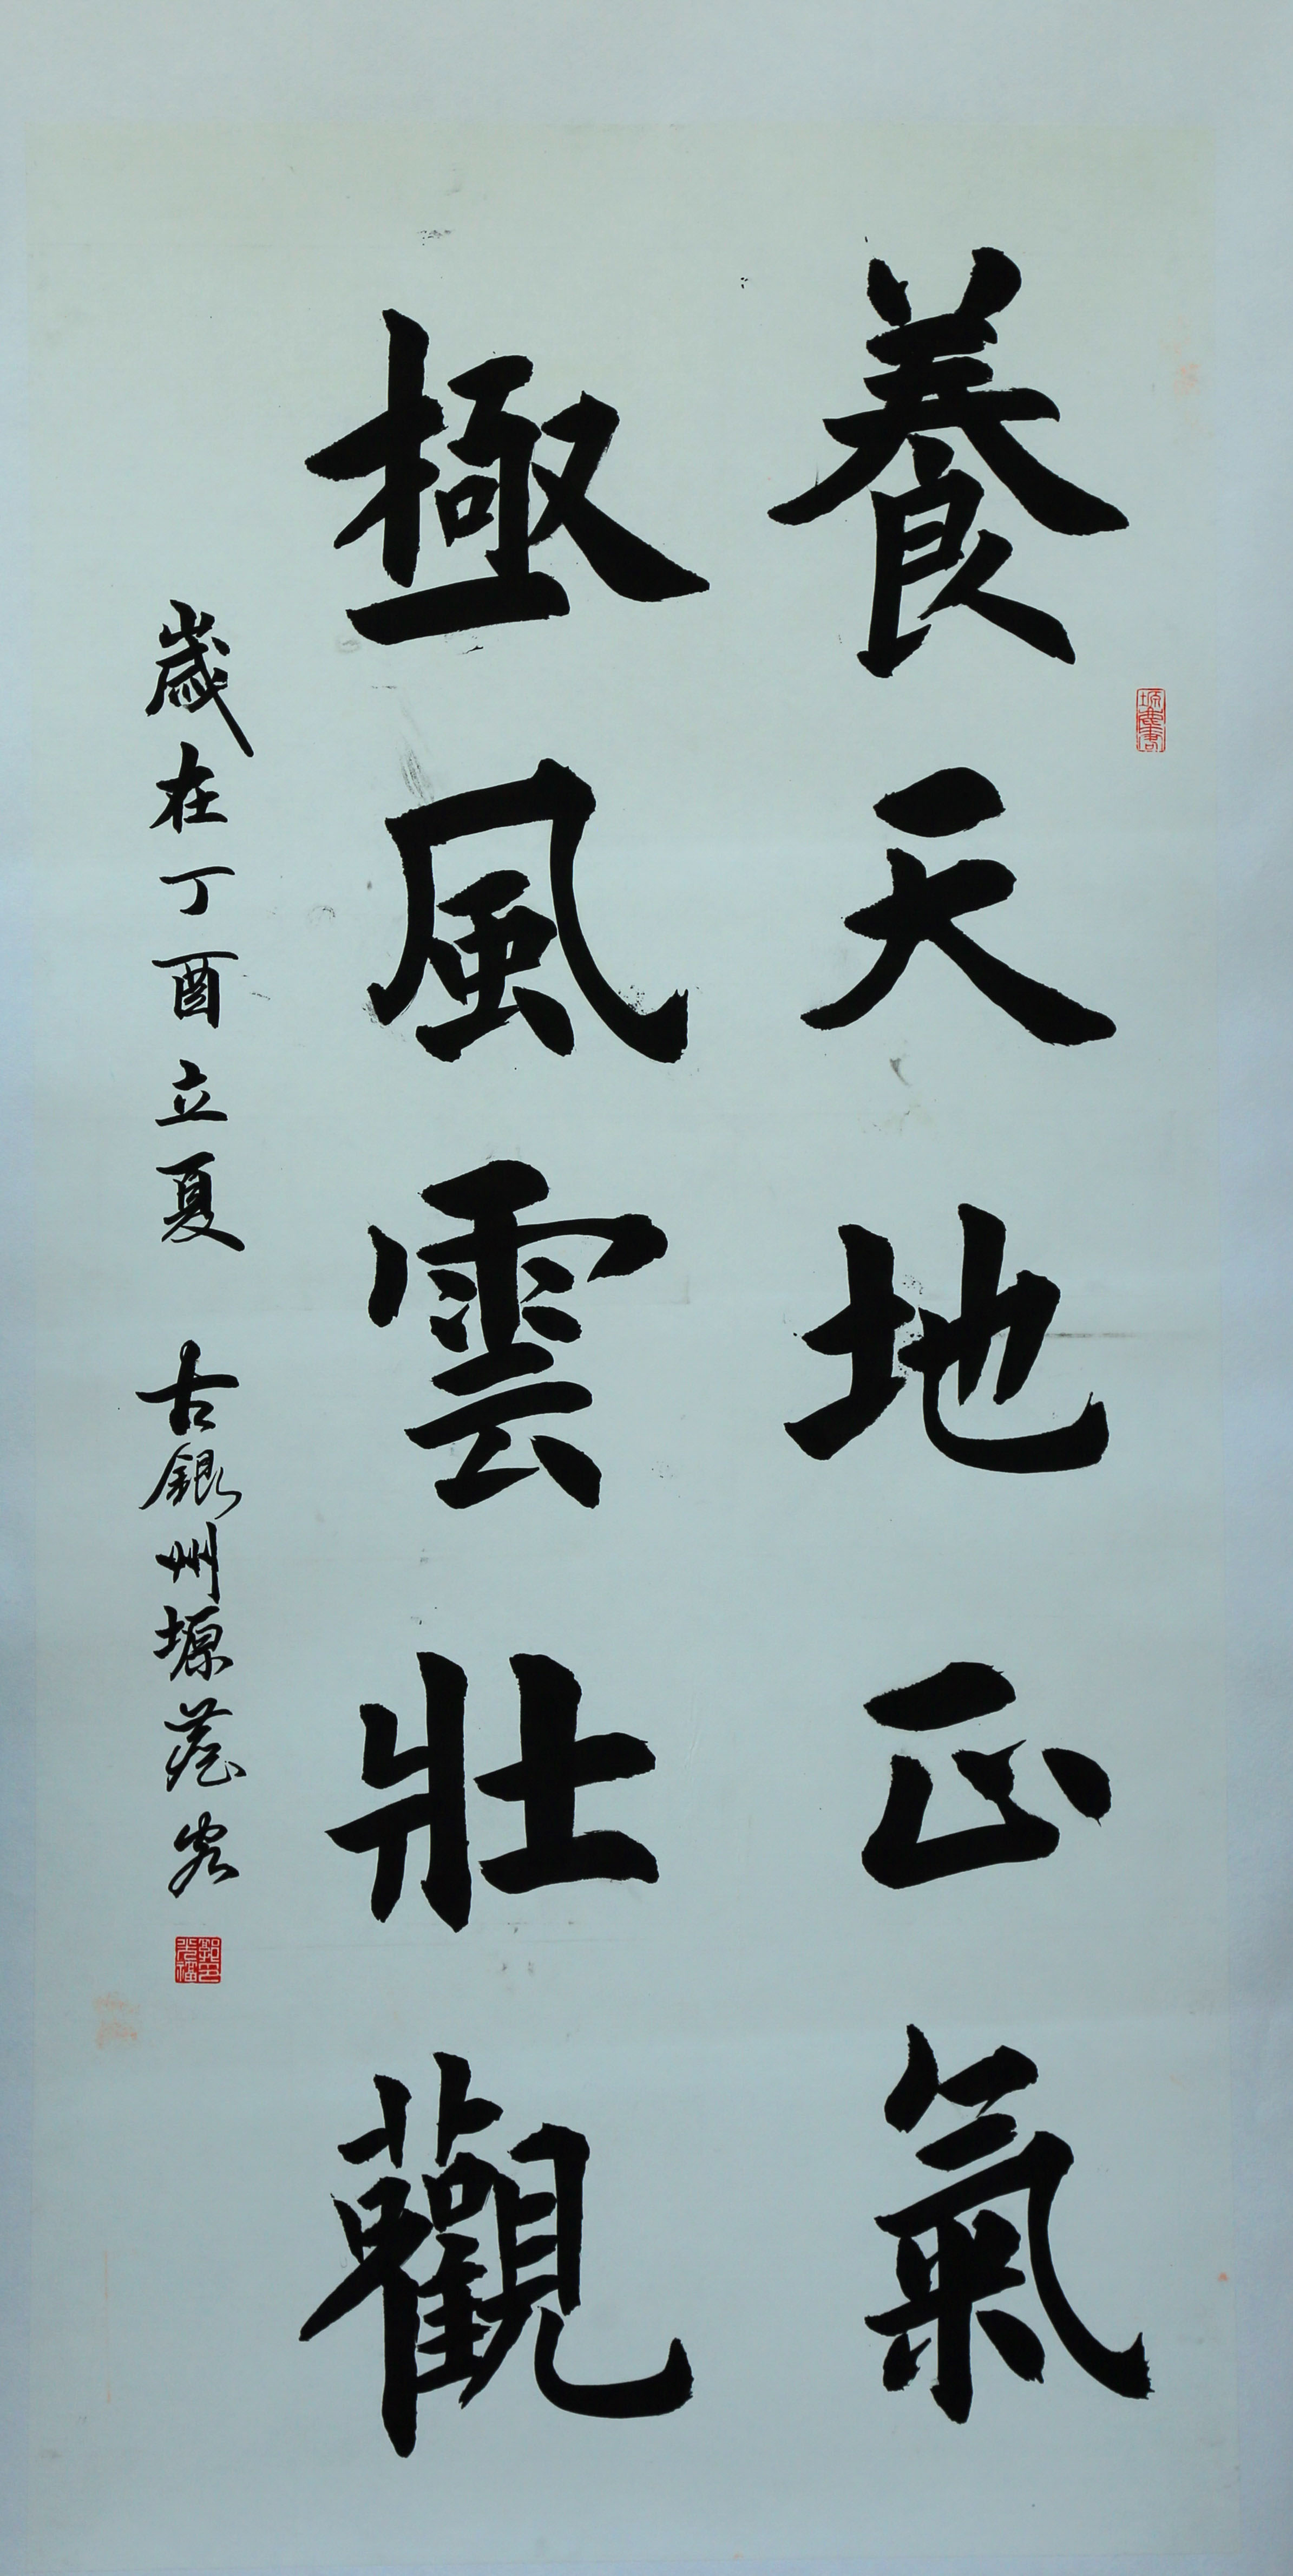 養天地正氣
極風雲壯觀
歲在丁酉立夏 古銀州塬